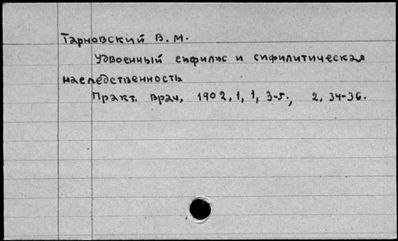 Тарновский В. М.
Удвоенный сифилис и сифилитическая
наследственность
Практ. врач, 1902, 1, 1, 3-5; 2, 34-36.